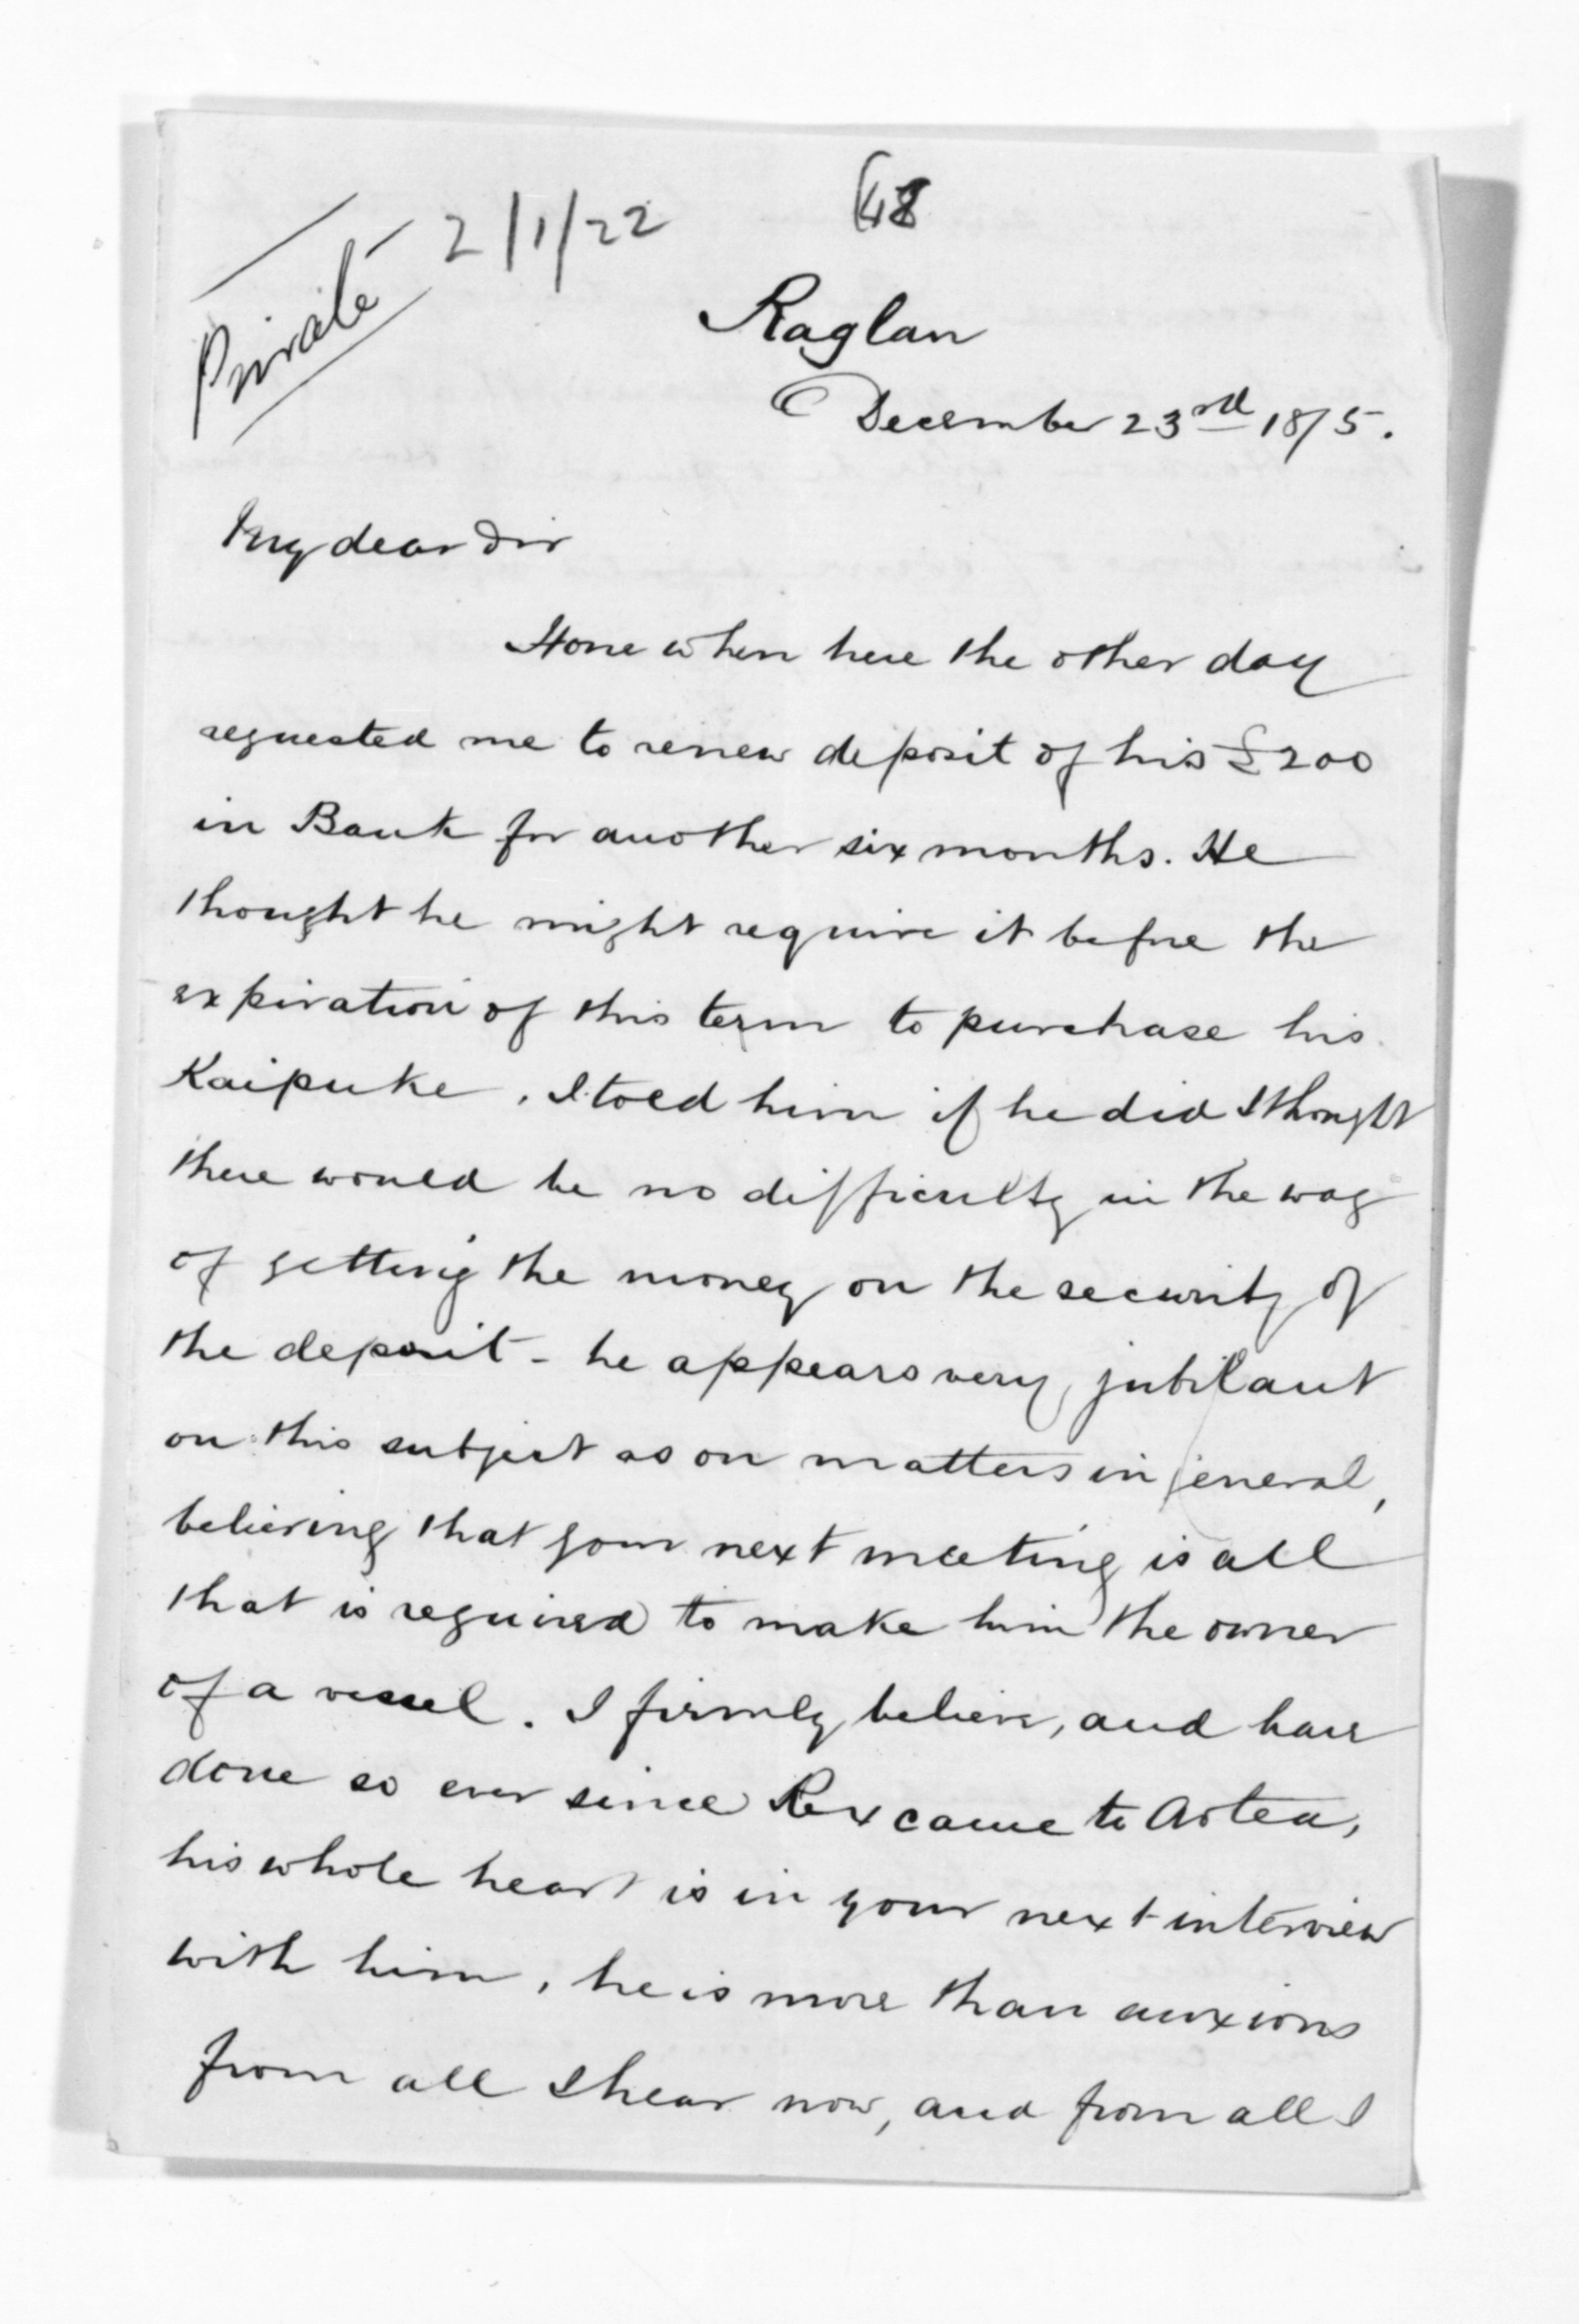 Private
2/1/22
Raglan
December 23rd 1875.
My dear Sir
Hone when here the other day
requested me to renew deposit of his £200
in Bank for another six months. He
thought he might require it before the
expiration of this term to purchase his
Kaipuke. I told him if he did I thought
there would be no difficulty in the way
of getting the money on the security of
the deposit - he appears very jubilant
on this subject as on matters in jeneral,
believing that your next meeting is all
that is required to make him the owner
of a vessel. I firmly believe, and have
done so ever since Rex came to Aotea,
his whole heart is in your next interview
with him, he is more than anxious
from all I hear now, and from all I